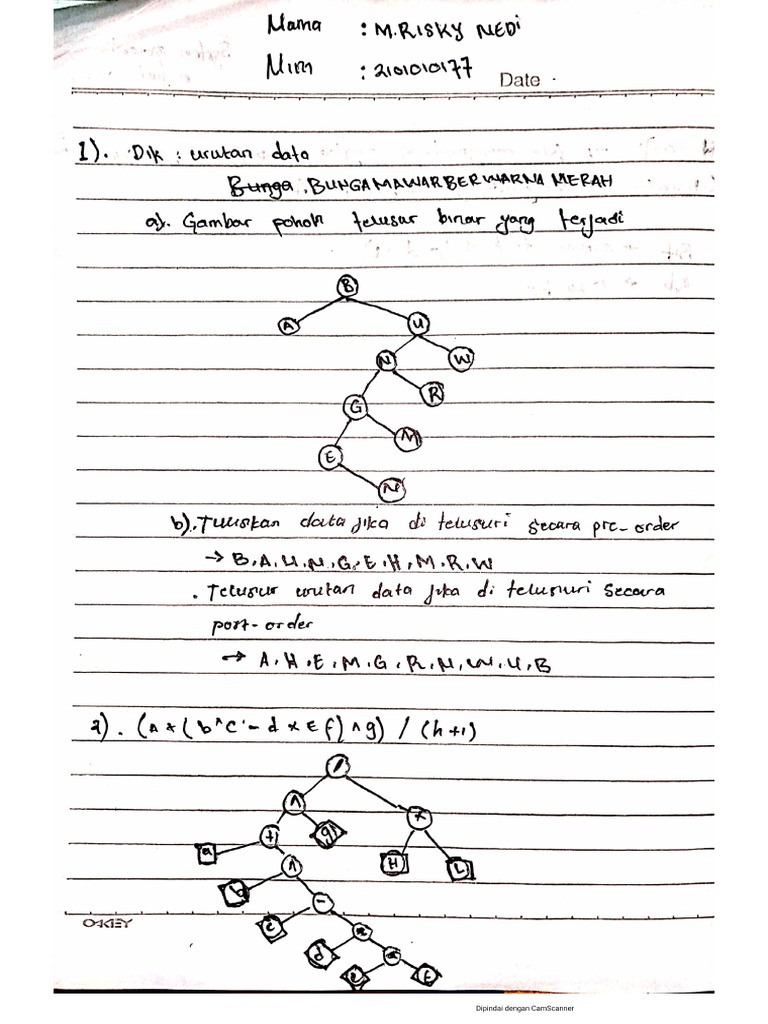 Nama : M.RISKY NEDI
Nim : 2101010177
Date
1). Dik : urutan data
Bunga, BUNGAMAWARBERWARNA MERAH
a). Gambar pohon telusur binar yang terjadi
B
A U
N W
G R
E M
N
b). Tuliskan data jika di telusuri secara pre-order
→ B, A, U, N, G, E, H, M, R, W
. Telusur urutan data jika di telusuri secara
post-order
→ A, H, E, M, G, R, N, W, U, B
2). (A + (b^c - d * E f) ^ g) / (h + 1)
/
^ *
+ g
a ^ H L
b -
c *
d *
e f
OKEY
Dipindai dengan CamScanner